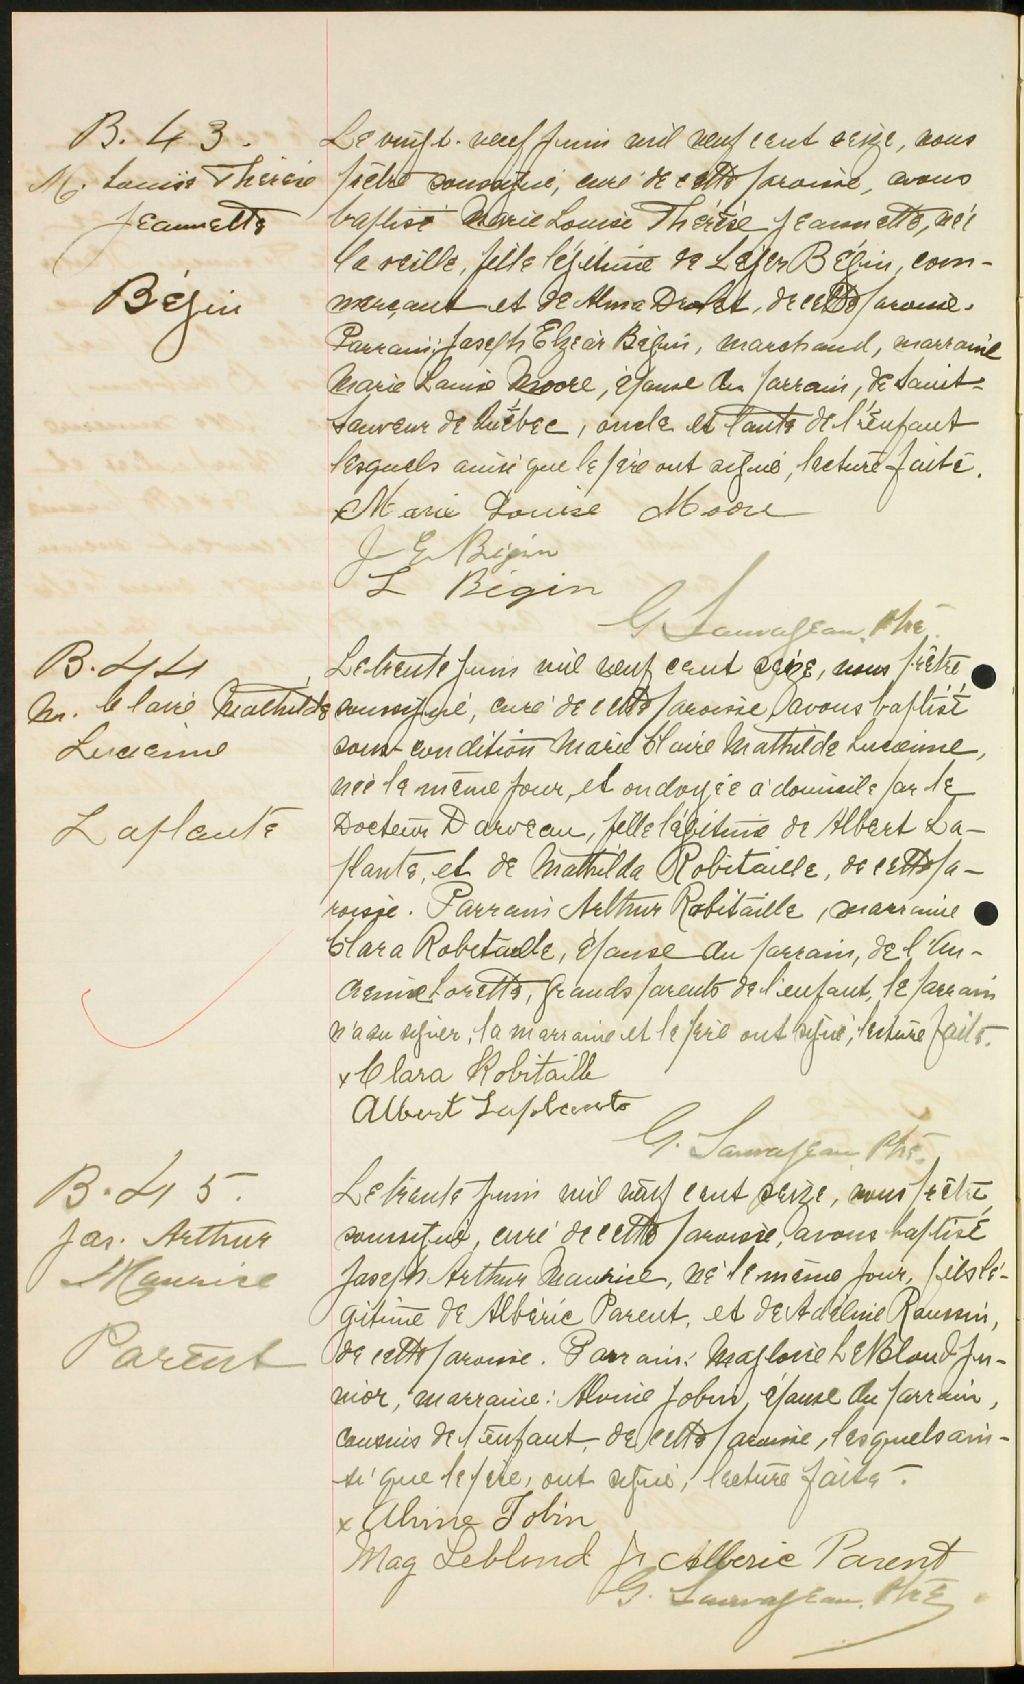 B. 43.
M. Louise Thérèse
Jeannette
Bégin
Le vingt-neuf juin mil neuf cent seize, nous
prêtre soussigné, curé de cette paroisse, avons
baptisé Marie Louise Thérèse Jeannette, née
la veille, fille légitime de Léger Bégin, com-
merçant et de Alma Drolet, de cette paroisse.
Parrain: Joseph Elzéar Bégin, marchand, marraine
Marie Louise Moore, épouse du parrain, de Saint-
Sauveur de Québec, oncle et tante de l'enfant
lesquels ainsi que le père ont signé, lecture faite.
x Marie Louise Moore
J E Bégin
L Bégin
G. Sauvageau, Ptre
B. 44
M. Claire Mathilde
Lucienne
Laplante
Le trente juin mil neuf cent seize, nous prêtre
soussigné, curé de cette paroisse, avons baptisé
sous condition Marie Claire Mathilde Lucienne,
née le même jour, et ondoyée à domicile par le
Docteur Darveau, fille légitime de Albert La-
plante, et de Mathilda Robitaille, de cette pa-
roisse. Parrain Arthur Robitaille, marraine
Clara Robitaille, épouse du parrain, de l'An-
cienne Lorette, grands parents de l'enfant, le parrain
n'a su signer, la marraine et le père ont signé, lecture faite.
x Clara Robitaille
Albert Laplante
G. Sauvageau Ptre.
B. 45.
Jos. Arthur
Maurice
Parent
Le trente juin mil neuf cent seize, nous prêtre
soussigné, curé de cette paroisse, avons baptisé
Joseph Arthur Maurice, né le même jour, fils lé-
gitime de Albéric Parent, et de Adelmie Roussin,
de cette paroisse. Parrain: Magloire LeBlond Ju-
nior, marraine: Alvine Jobin, épouse du parrain,
cousins de l'enfant, de cette paroisse, lesquels ain-
si que le père, ont signé, lecture faite.
x Alvine Jobin
Mag Leblond Jr Alberic Parent
G. Sauvageau, Ptre